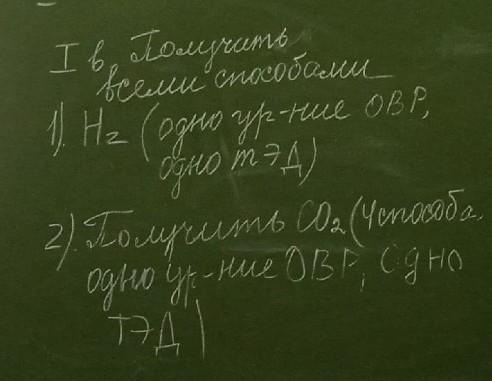 I в. Получить
всеми способами
1). H₂ (одно ур-ние ОВР,
одно тЭД)
2). Получить CO₂ (4 способа,
одно ур-ние ОВР, одно
тЭД)